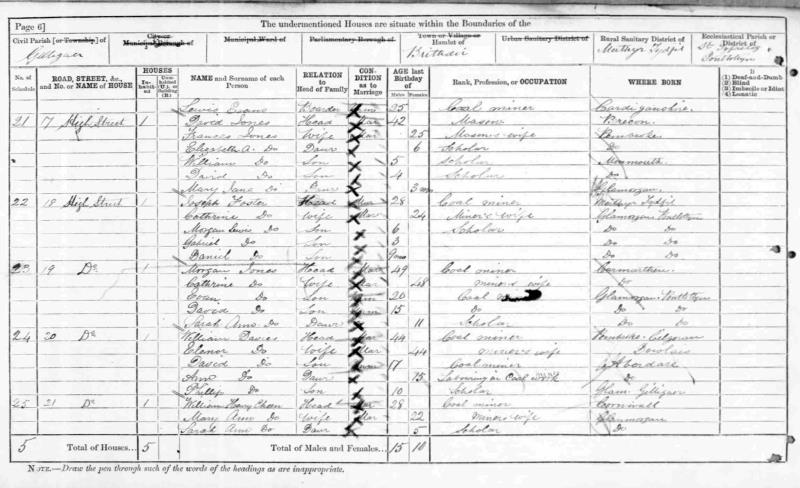 Page 6]
The undermentioned Houses are situate within the Boundaries of the
Civil Parish [or Township] of
Gelligaer
City or Municipal Borough of
Municipal Ward of
Parliamentary Borough of
Town or Village or Hamlet of
Brithdir
Urban Sanitary District of
Rural Sanitary District of
Merthyr Tydfil
Ecclesiastical Parish or District of
Pontlottyn
No. of Schedule
ROAD, STREET, &c., and No. or NAME of HOUSE
HOUSES
Inhabited
Uninhabited (U.), or Building (B.)
NAME and Surname of each Person
RELATION to Head of Family
CONDITION as to Marriage
AGE last Birthday of
Males
Females
Rank, Profession, or OCCUPATION
WHERE BORN
If
(1) Deaf-and-Dumb
(2) Blind
(3) Imbecile or Idiot
(4) Lunatic
Lewis Evans Boarder 25 Coal miner Cardiganshire
21 17 High Street 1 David Jones Head 42 Mason Brecon
Frances Jones Wife 25 Mason's wife Pembroke
Elizabeth A. Do Daur 6 Scholar Do
William Do Son 5 Scholar Monmouth
David Do Son 4 Scholar Do
Mary Jane Do Daur 3 mo Glamorgan
22 18 High Street 1 Joseph Foster Head Mar 28 Coal miner Merthyr Tydfil
Catherine Do Wife Mar 24 Miner's wife Glamorgan
Morgan Lewis Do Son 6 Scholar Do Do
Gabriel Do Son 3 Do Do
Daniel Do Son 9mo Do Do
23 19 Do 1 Morgan Jones Head Mar 49 Coal minor Carmarthen
Cathrine Do Wife Mar 48 minors wife Do
Evan Do Son 20 Coal Glamorgan
David Do Son 15 Do Do Do
Sarah Ann Do Daur 11 Scholar Do Do
24 20 Do 1 William Davies Head Mar 44 Coal minor Pembroke
Elenor Do Wife Mar 44 minor's wife Dowlais
David Do Son 17 Coal minor Aberdare
Ann Do Daur 15 Labouring on Coal work Do
Phillip Do Son 10 Scholar Glam Gelligaer
25 21 Do 1 William Henry Head Mar 28 Coal minor Cornwall
Mary Ann Do Wife Mar 22 Minors wife Glamorgan
Sarah Ann Do Daur 5 Scholar Do
5 Total of Houses... 5 Total of Males and Females... 15 10
NOTE.—Draw the pen through such of the words of the headings as are inappropriate.